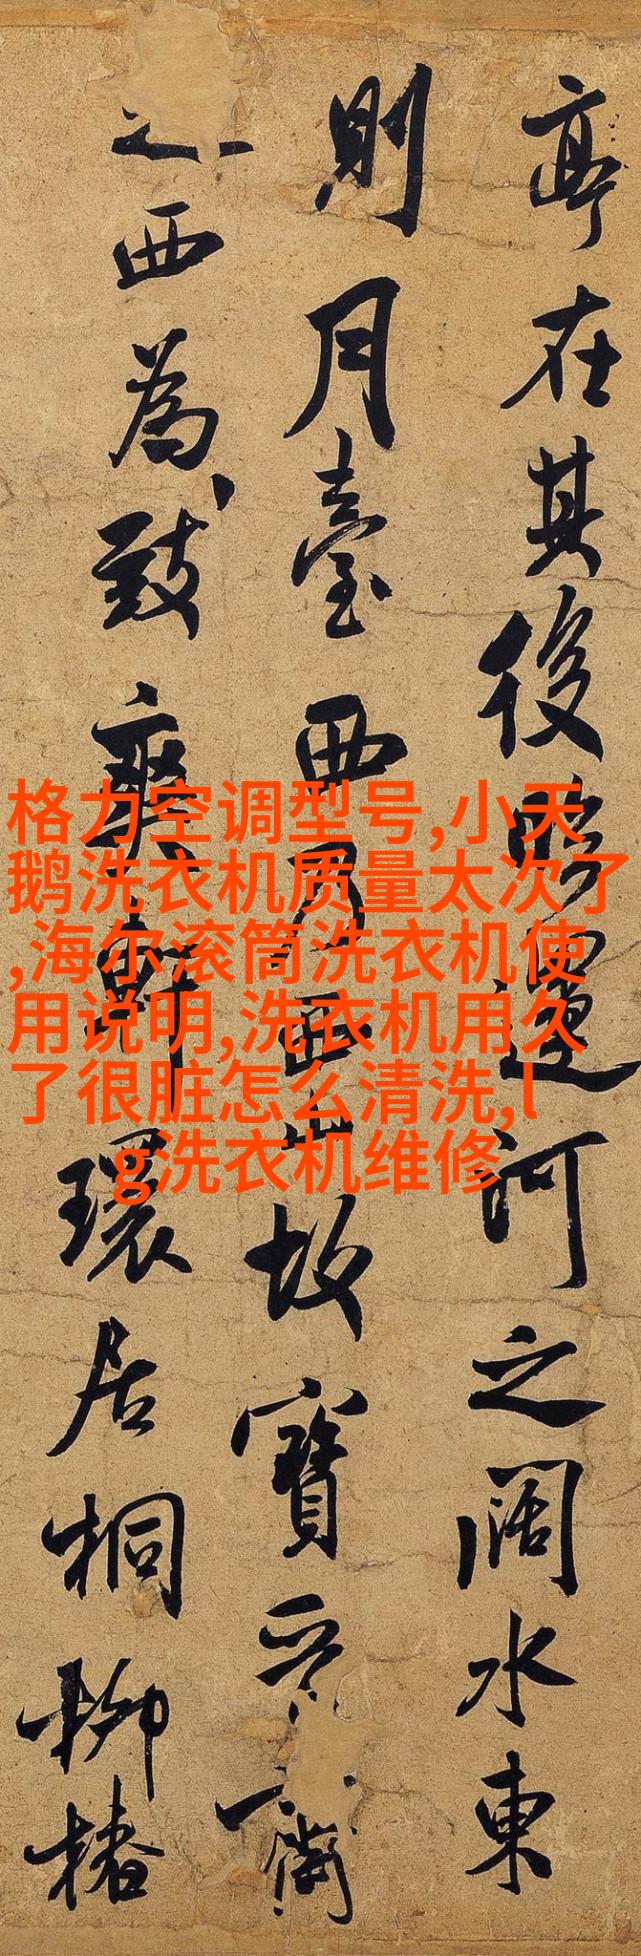 亭在其後臨運河之阔水東
則月臺西有西山故寶晉齋
之西為致爽軒環居桐柳椿
格力空调型号,小天
鹅洗衣机质量太次了
,海尔滚筒洗衣机使
用说明,洗衣机用久
了很脏怎么清洗,l
g洗衣机维修